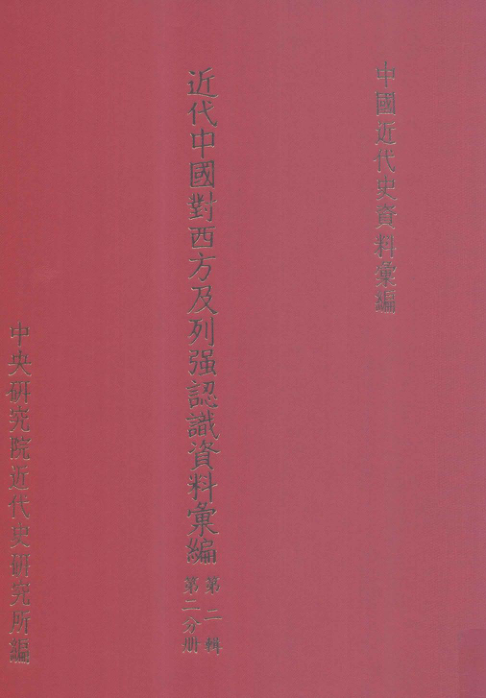 中國近代史資料彙編
近代中國對西方及列强認識資料彙編
第二輯
第二分册
中央研究院近代史研究所編